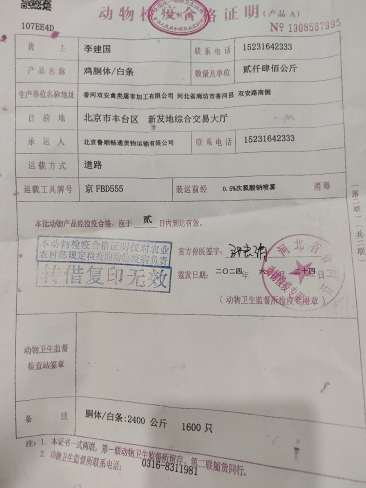 动物检疫合格证明(产品A)
107EE4D
№ 1308587995
货主 李建国 联系电话 15231642333
产品名称 鸡胴体/白条 数量及单位 贰仟肆佰公斤
生产单位名称地址 香河双安禽类屠宰加工有限公司 河北省廊坊市香河县 双安路南侧
目的地 北京市丰台区 新发地综合交易大厅
承运人 北京鲁顺畅通货物运输有限公司 联系电话 15231642333
运载方式 道路
运载工具牌号 京FBD555 装运前经 0.5%次氯酸钠喷雾 消毒
本批动物产品经检疫合格,应于 贰 日内到达有效。
本动物检疫合格证明仅对农业
农村部规定检疫的动物疫病负责
转借复印无效
官方兽医签字:
签发日期: 二〇二四年 六 月 二十四日
(动物卫生监督所检疫专用章)
河北省
动物卫生监督
检查站签章
备注 胴体/白条:2400 公斤 1600 只
注:1. 本证书一式两联,第一联动物卫生监督所留存,第二联随货同行。
2. 动物卫生监督所联系电话: 0316-8311981